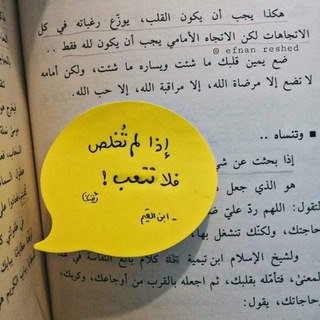 هكذا يجب أن يكون القلب، يوزّع رغباته في كل
الاتجاهات لكن الاتجاه الأمامي يجب أن يكون لله فقط ..
@ efnan reshed
ضع يمين قلبك ما شئت ويساره ما شئت، ولكن أمامه
لا تضع إلا مرضاة الله، إلا مراقبة الله، إلا حب الله.
وتنساه ..
إذا بحثت عن
هو الذي جعل
إذا لم تُخلص
فلا تتعب !
- ابن القيم
لتقول: اللهم ردّ عليّ
حاجتك، ولكنّك تنشغل
ولشيخ الإسلام ابن تيمية
كلام بالغ النفاسة في هذا
المعنى، فتأمّله بقلبك، ثم اجعله بالقرب من أوجاعك، وكربك،
وحاجاتك، يقول: